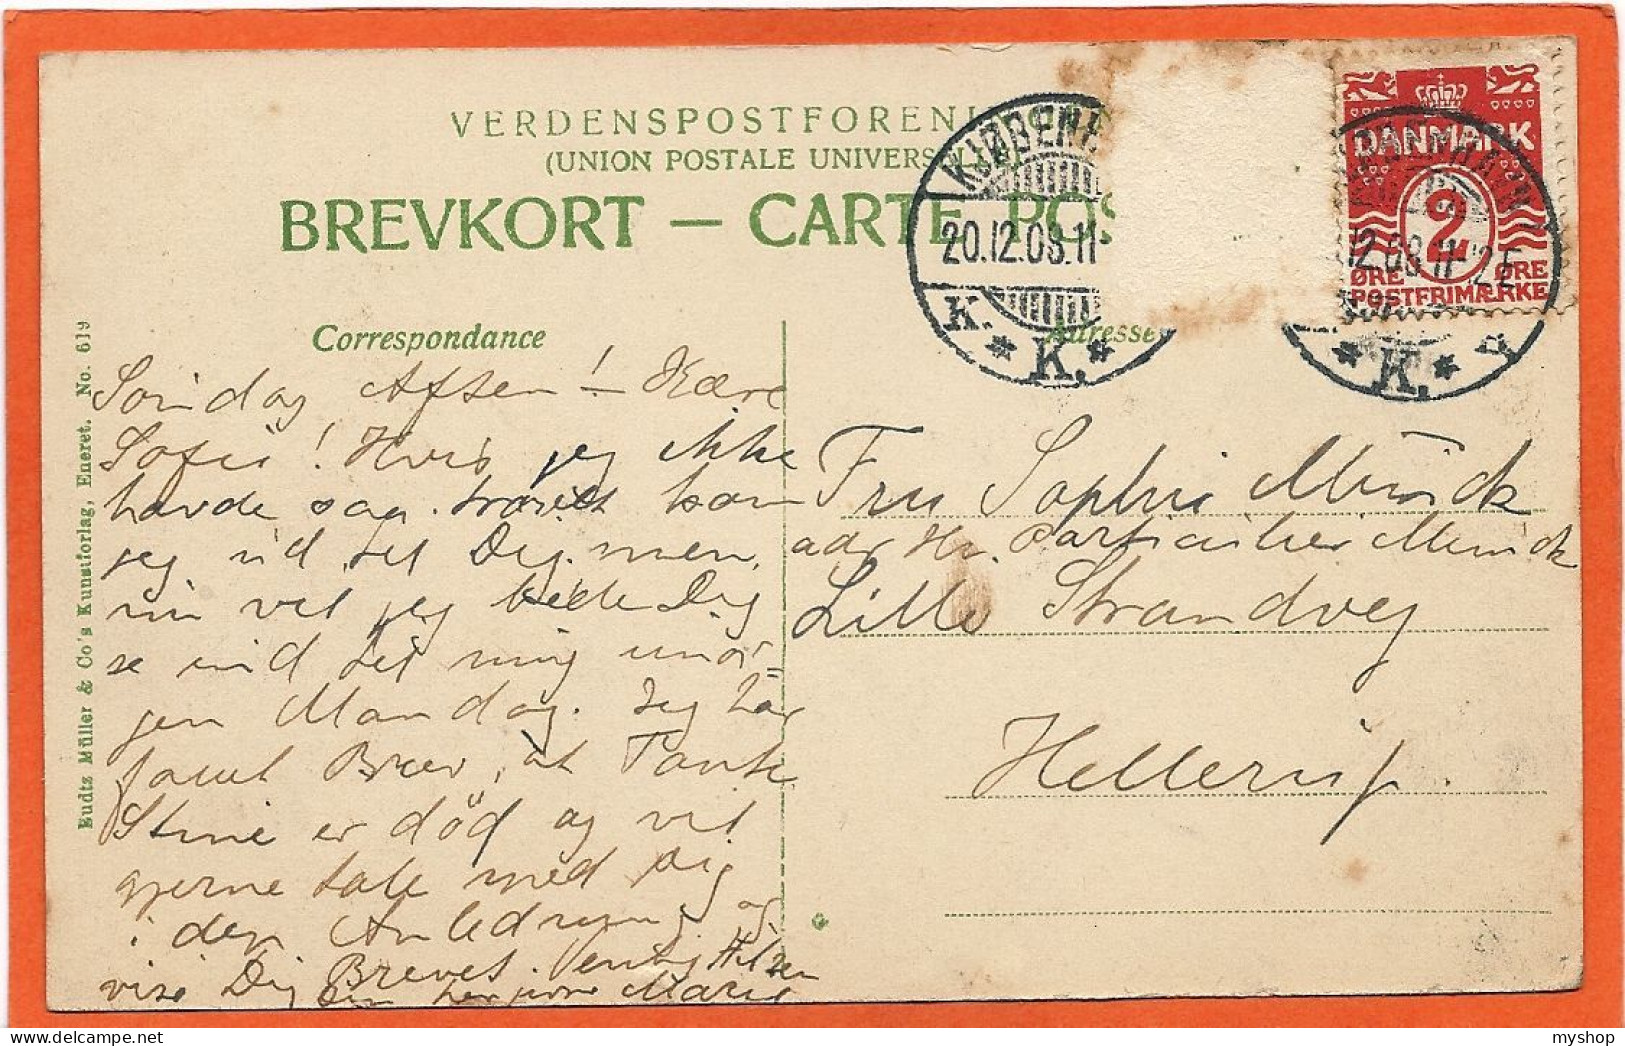 VERDENSPOSTFORENI
(UNION POSTALE UNIVERSELLE)
BREVKORT — CARTE POS
KJØBENH
20.12.08.11-
K. * K. *
DANMARK
2
ØRE ØRE
POSTFRIMÆRKE
12.08.11-12E
* K. *
Correspondance
Adresse
Eudtz Müller & Co's Kunstforlag, Eneret. No. 619
Søndag Aften! – Kære
Sofie! Hvis jeg ikke
havde saa travlt kom
jeg ud til Dig, men
nu vil jeg bede Dig
se ind til mig imor=
gen Mandag. Jeg har
faaet Brev, at Tante
Stine er død og vil
gjerne tale med Dig
i den Anledning og
vise Dig Brevet. Venlig Hilsen
Marie
Fru Sophie Münck
adr Hr. Particulier Münck
Lille Strandvej
Hellerup.
myshop